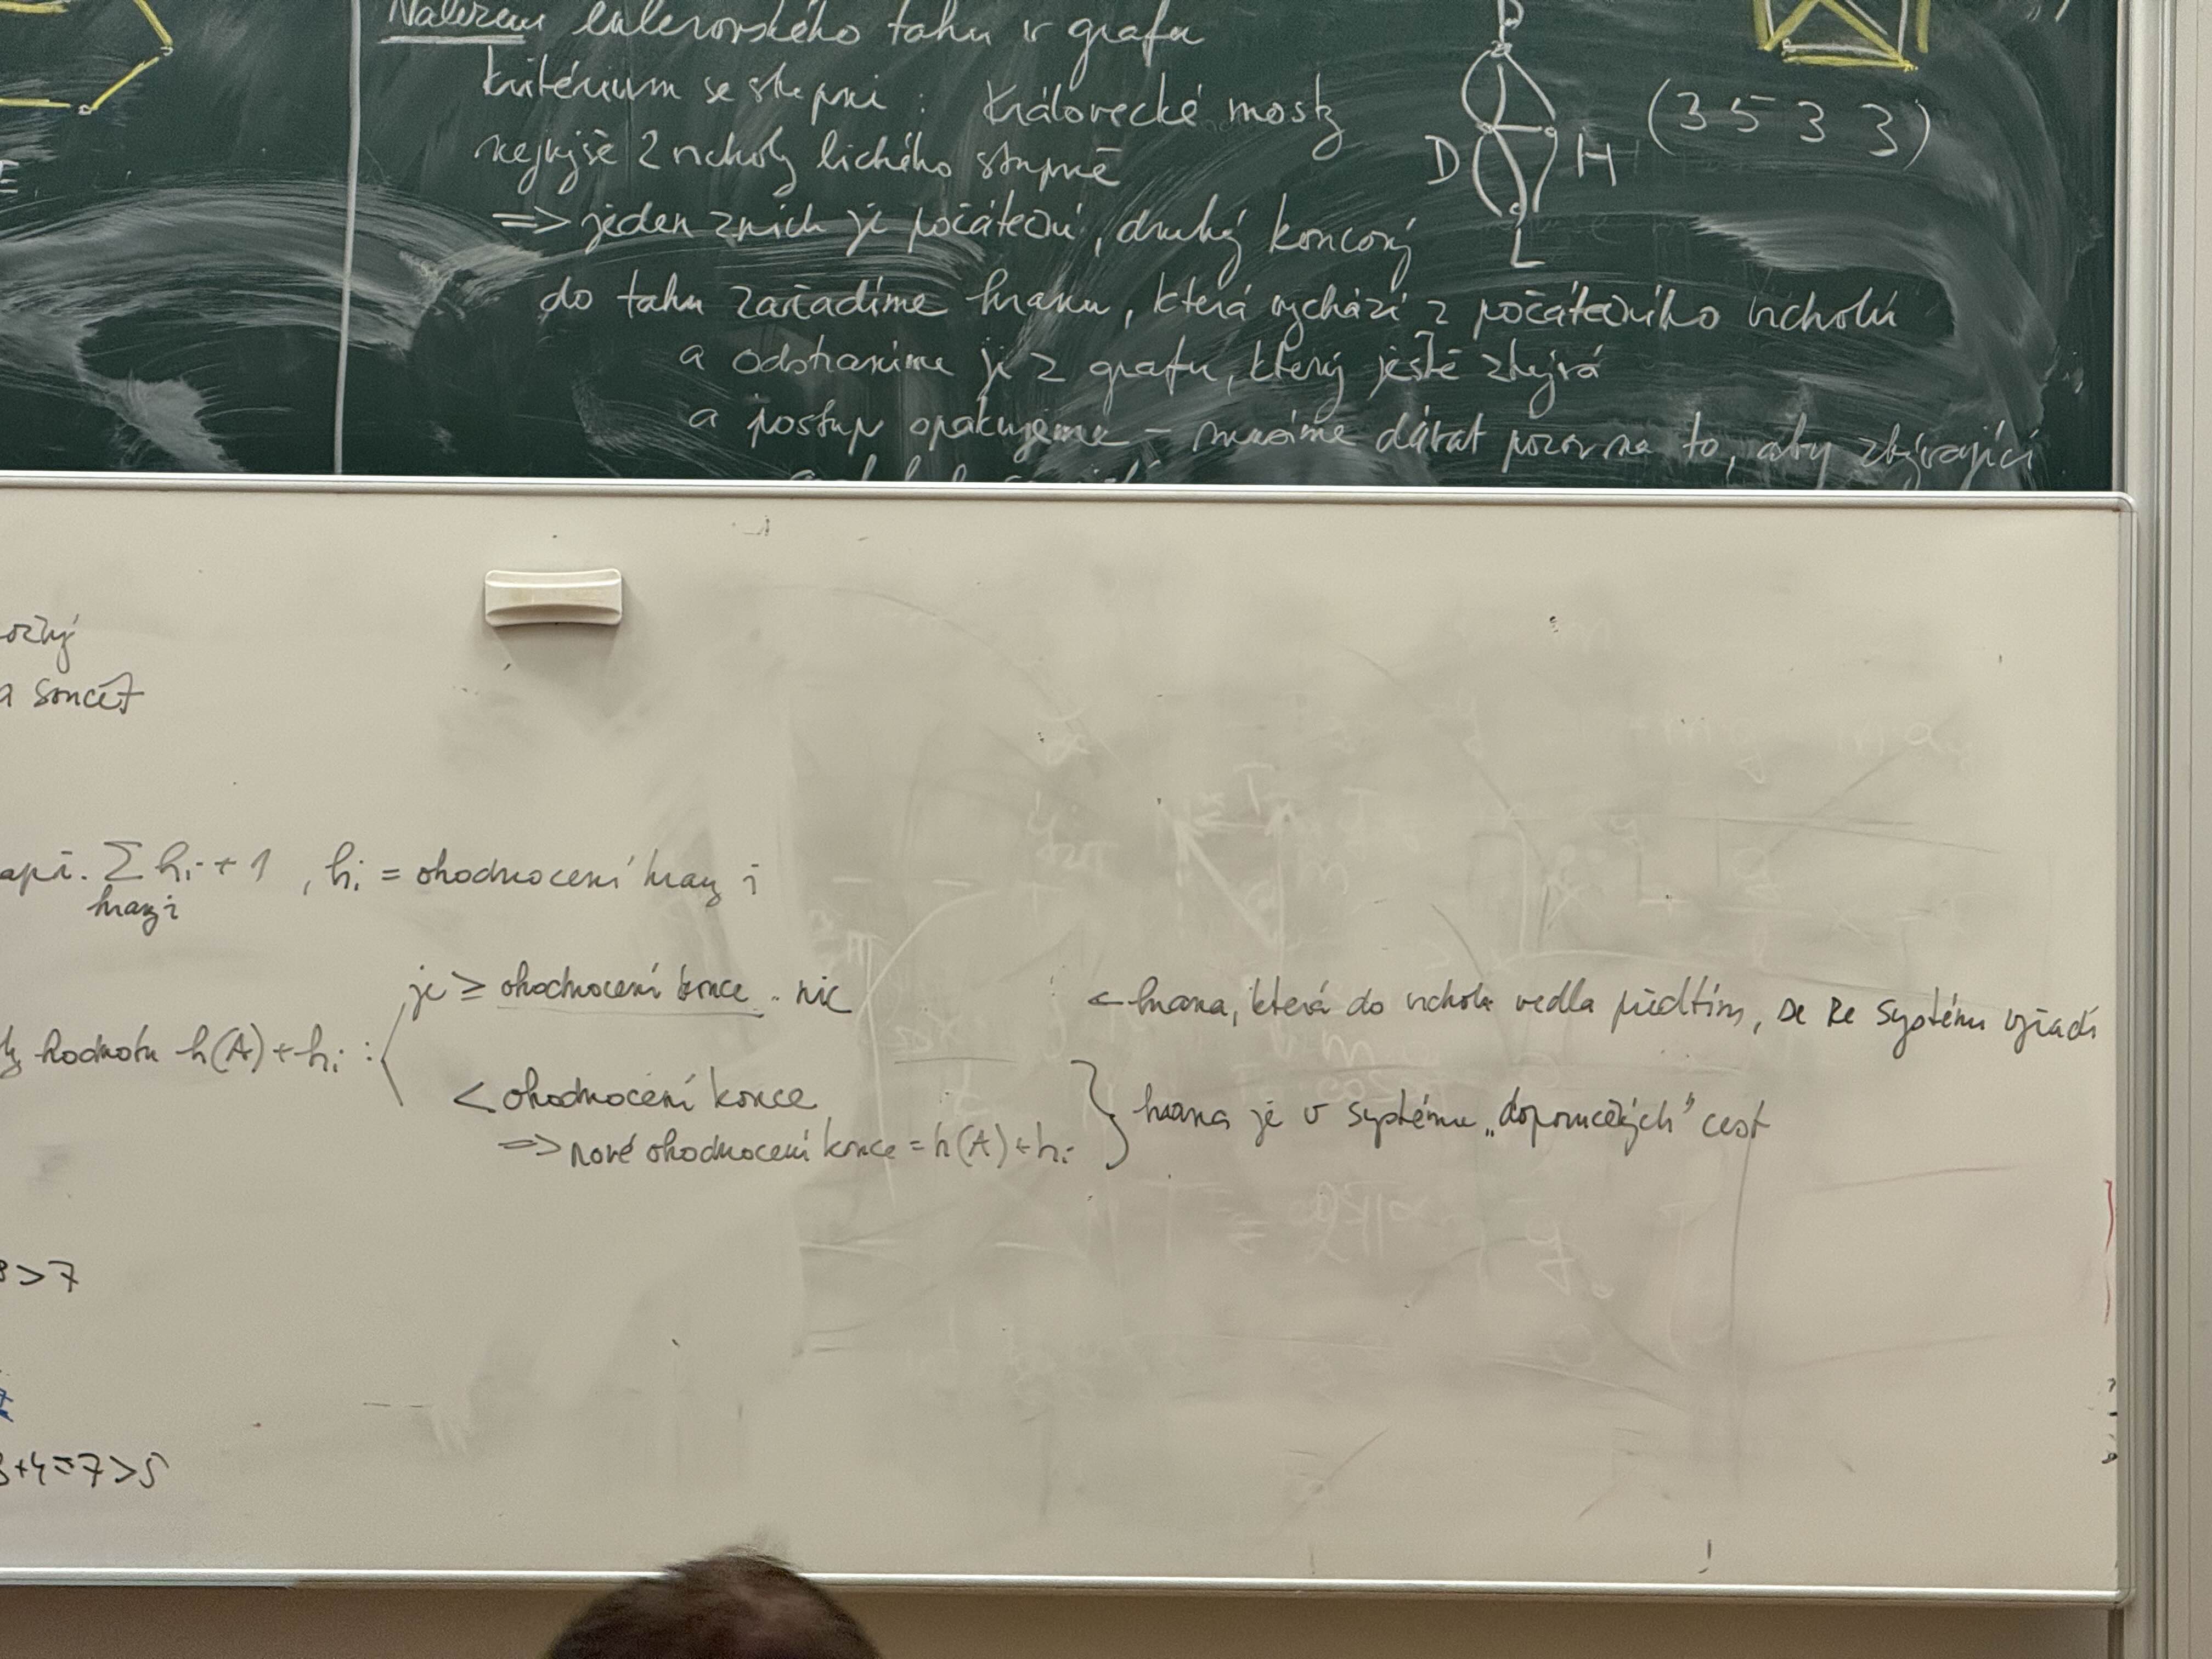 Nalezení eulerovského tahu v grafu
kritérium se stupni : Královecké mosty
nejvýše 2 vrcholy lichého stupně
D H (3 5 3 3)
L
=> jeden z nich je počáteční, druhý koncový
do tahu zařadíme hranu, která vychází z počátečního vrcholu
a odstraníme ji z grafu, který ještě zbývá
a postup opakujeme - musíme dávat pozor na to, aby zbývající
a součet
∑ hi + 1 , hi = ohodnocení hrany i
hrany i
je ≥ ohodnocení konce .. nic
← hrana, která do vrcholu vedla předtím, se ze systému vyřadí
hodnotu h(A) + hi :
< ohodnocení konce
=> nové ohodnocení konce = h(A) + hi
} hrana je v systému „doporučených" cest
> 7
+4=7>5